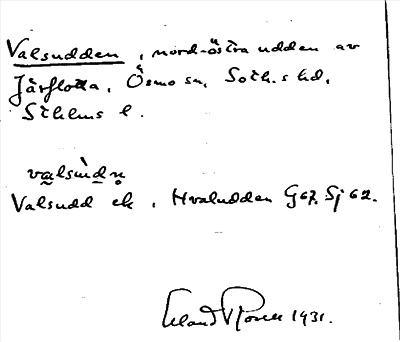 Valsudden, nord-östra udden av
Järflotta, Ösmo sn, Soth.s hd,
Sthlms l.
valsùdn̥
Valsudd ek, Hvaludden G67. Sj 62.
1931.